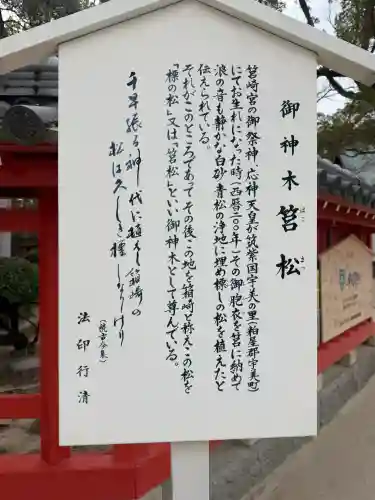 御神木 筥松
はこ まつ
筥崎宮の御祭神、応神天皇が筑紫国宇美の里(粕屋郡宇美町)
にてお生れになった時(西暦二〇〇年)その御胞衣を筥に納めて
浪の音も静かな白砂青松の浄地に埋め標しの松を植えたと
伝えられている。
それがこのところであって、その後この地を箱崎と称えこの松を
「標の松」又は「筥松」といい御神木として尊んでいる。
千早振る神代に植えし箱崎の
松は久しき種しなりけり
(続古今集)
法印行清